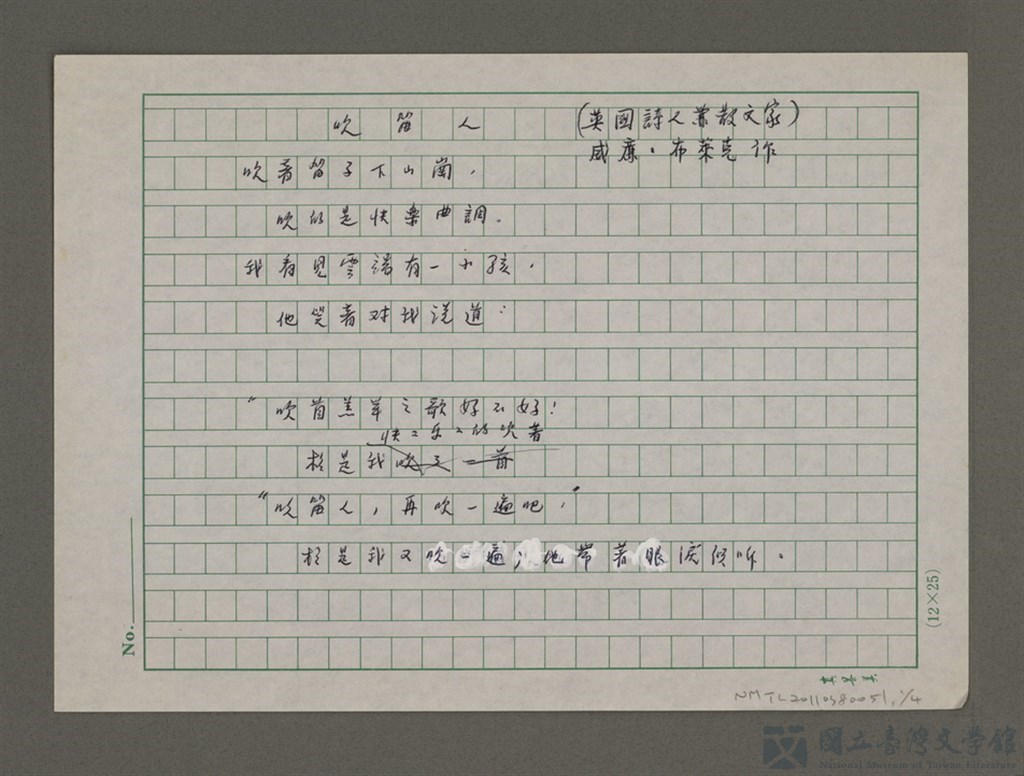 吹笛人
(英國詩人兼散文家)
威廉·布萊克作
吹著笛子下山崗，
吹的是快樂曲調。
我看見雲端有一小孩，
他笑著对我説道：
“吹首羔羊之歌好不好！
快々乐々的吹著
於是我吹了一首
“吹笛人，再吹一遍吧，”
於是我又吹一遍他帶著眼淚傾听。
(12×25)
No.
NMTL20110380051, 1/4
國立臺灣文學館
National Museum of Taiwan Literature